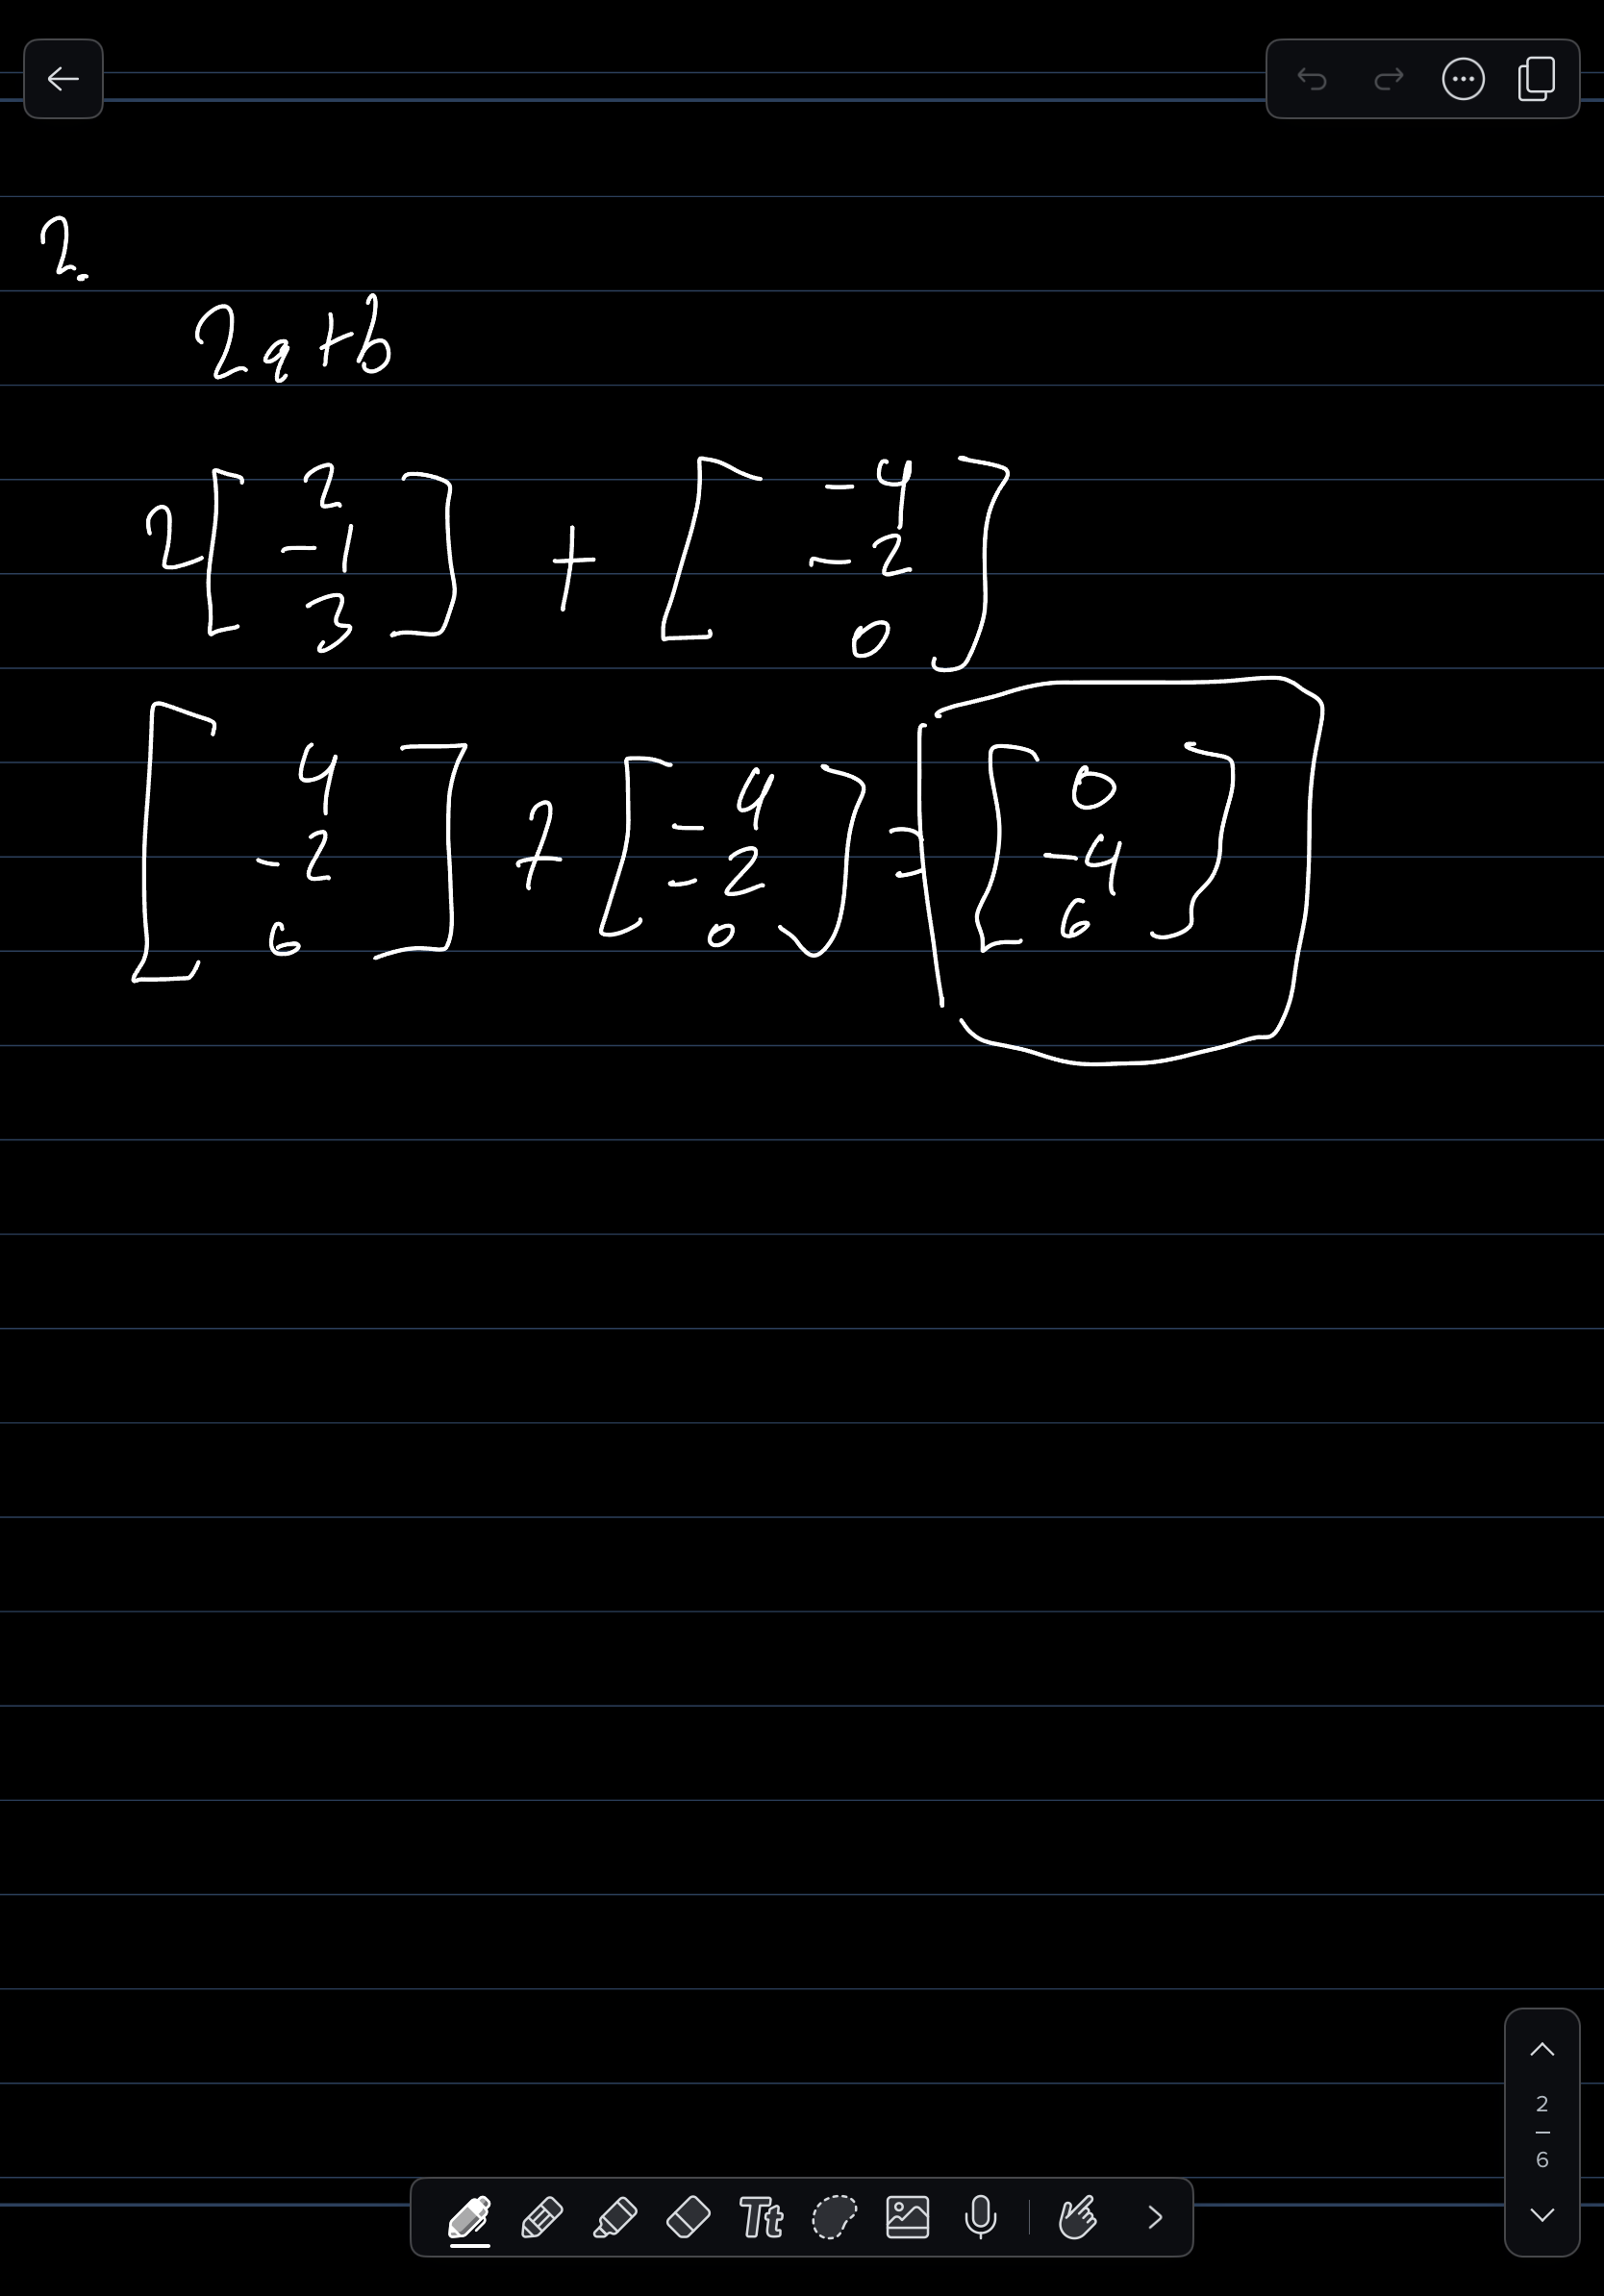 2.
2a+b
2[2 -1 3] + [-4 -2 0]
[4 -2 6] + [-4 -2 0] = [0 -4 6]
Tt
2
6